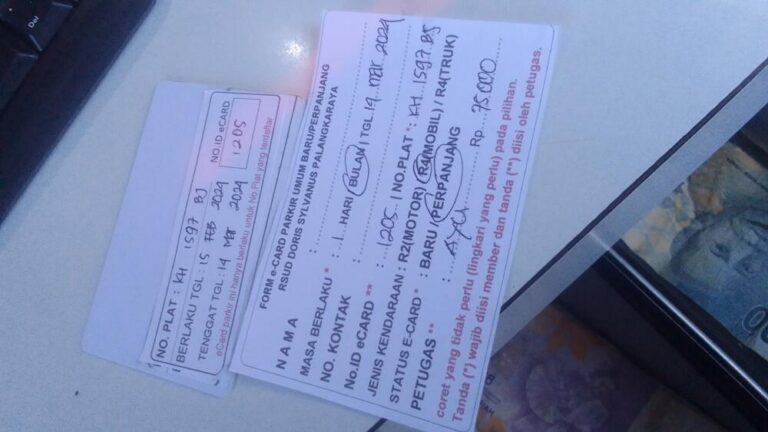 NO. PLAT : KH 1597 BJ
BERLAKU TGL : 15 FEB 2024
TENGGAT TGL : 14 Mar 2024
NO.ID eCARD
1205
eCard parkir ini hanya berlaku untuk No.Plat yang terdaftar
FORM e-CARD PARKIR UMUM BARU/PERPANJANG
RSUD DORIS SYLVANUS PALANGKARAYA
N A M A :
MASA BERLAKU * : 1 HARI / BULAN / TGL 14 Mar 2024
NO. KONTAK :
No.ID eCARD ** : 1205 / NO.PLAT * : KH 1597 BJ
JENIS KENDARAAN : R2(MOTOR) / R4(MOBIL) / R4(TRUK)
STATUS E-CARD * : BARU / PERPANJANG
PETUGAS ** : Ayu Rp. 75.000
coret yang tidak perlu (lingkari yang perlu) pada pilihan.
Tanda (*) wajib diisi member dan tanda (**) diisi oleh petugas.